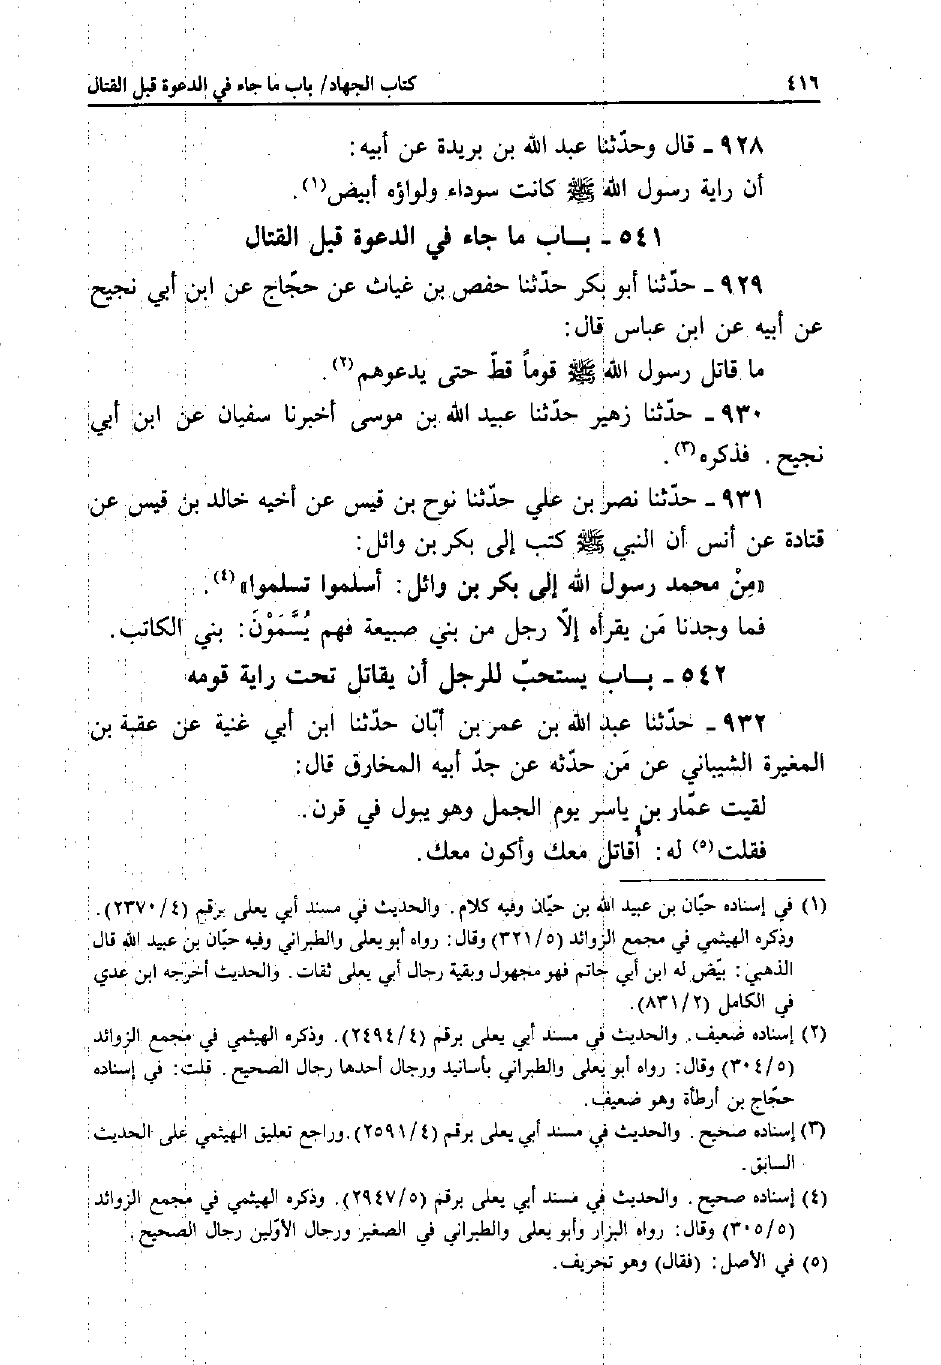 ٤١٦ كتاب الجهاد/ باب ما جاء في الدعوة قبل القتال
٩٢٨ ـ قال وحدّثنا عبد الله بن بريدة عن أبيه:
أن راية رسول الله ﷺ كانت سوداء ولواؤه أبيض(١).
٥٤١ ـ بـاب ما جاء في الدعوة قبل القتال
٩٢٩ ـ حدّثنا أبو بكر حدّثنا حفص بن غياث عن حجّاج عن ابن أبي نجيح
عن أبيه عن ابن عباس قال:
ما قاتل رسول الله ﷺ قوماً قطّ حتى يدعوهم(٢).
٩٣٠ ـ حدّثنا زهير حدّثنا عبيد الله بن موسى أخبرنا سفيان عن ابن أبي
نجيح. فذكره(٣).
٩٣١ ـ حدّثنا نصر بن علي حدّثنا نوح بن قيس عن أخيه خالد بن قيس عن
قتادة عن أنس أن النبي ﷺ كتب إلى بكر بن وائل:
«مِنْ محمد رسول الله إلى بكر بن وائل: أسلموا تسلموا»(٤).
فما وجدنا مَن يقرأه إلّا رجل من بني صبيعة فهم يُسَّمَوْنَ: بني الكاتب.
٥٤٢ ـ بـاب يستحبّ للرجل أن يقاتل تحت راية قومه
٩٣٢ ـ حدّثنا عبد الله بن عمر بن أبّان حدّثنا ابن أبي غنية عن عقبة بن
المغيرة الشيباني عن مَن حدّثه عن جدّ أبيه المخارق قال:
لقيت عمّار بن ياسر يوم الجمل وهو يبول في قرن.
فقلت(٥) له: أقاتل معك وأكون معك.
(١) في إسناده حيّان بن عبيد الله بن حيّان وفيه كلام. والحديث في مسند أبي يعلى برقم (٢٣٧٠/٤).
وذكره الهيثمي في مجمع الزوائد (٣٢١/٥) وقال: رواه أبو يعلى والطبراني وفيه حيّان بن عبيد الله قال
الذهبي: بيّض له ابن أبي حاتم فهو مجهول وبقية رجال أبي يعلى ثقات. والحديث أخرجه ابن عدي
في الكامل (٨٣١/٢).
(٢) إسناده ضعيف. والحديث في مسند أبي يعلى برقم (٢٤٩٤/٤). وذكره الهيثمي في مجمع الزوائد
(٣٠٤/٥) وقال: رواه أبو يعلى والطبراني بأسانيد ورجال أحدها رجال الصحيح. قلت: في إسناده
حجّاج بن أرطأة وهو ضعيف.
(٣) إسناده صحيح. والحديث في مسند أبي يعلى برقم (٢٥٩١/٤). وراجع تعليق الهيثمي على الحديث
السابق.
(٤) إسناده صحيح. والحديث في مسند أبي يعلى برقم (٢٩٤٧/٥). وذكره الهيثمي في مجمع الزوائد
(٣٠٥/٥) وقال: رواه البزار وأبو يعلى والطبراني في الصغير ورجال الأوّلين رجال الصحيح.
(٥) في الأصل: (فقال) وهو تحريف.